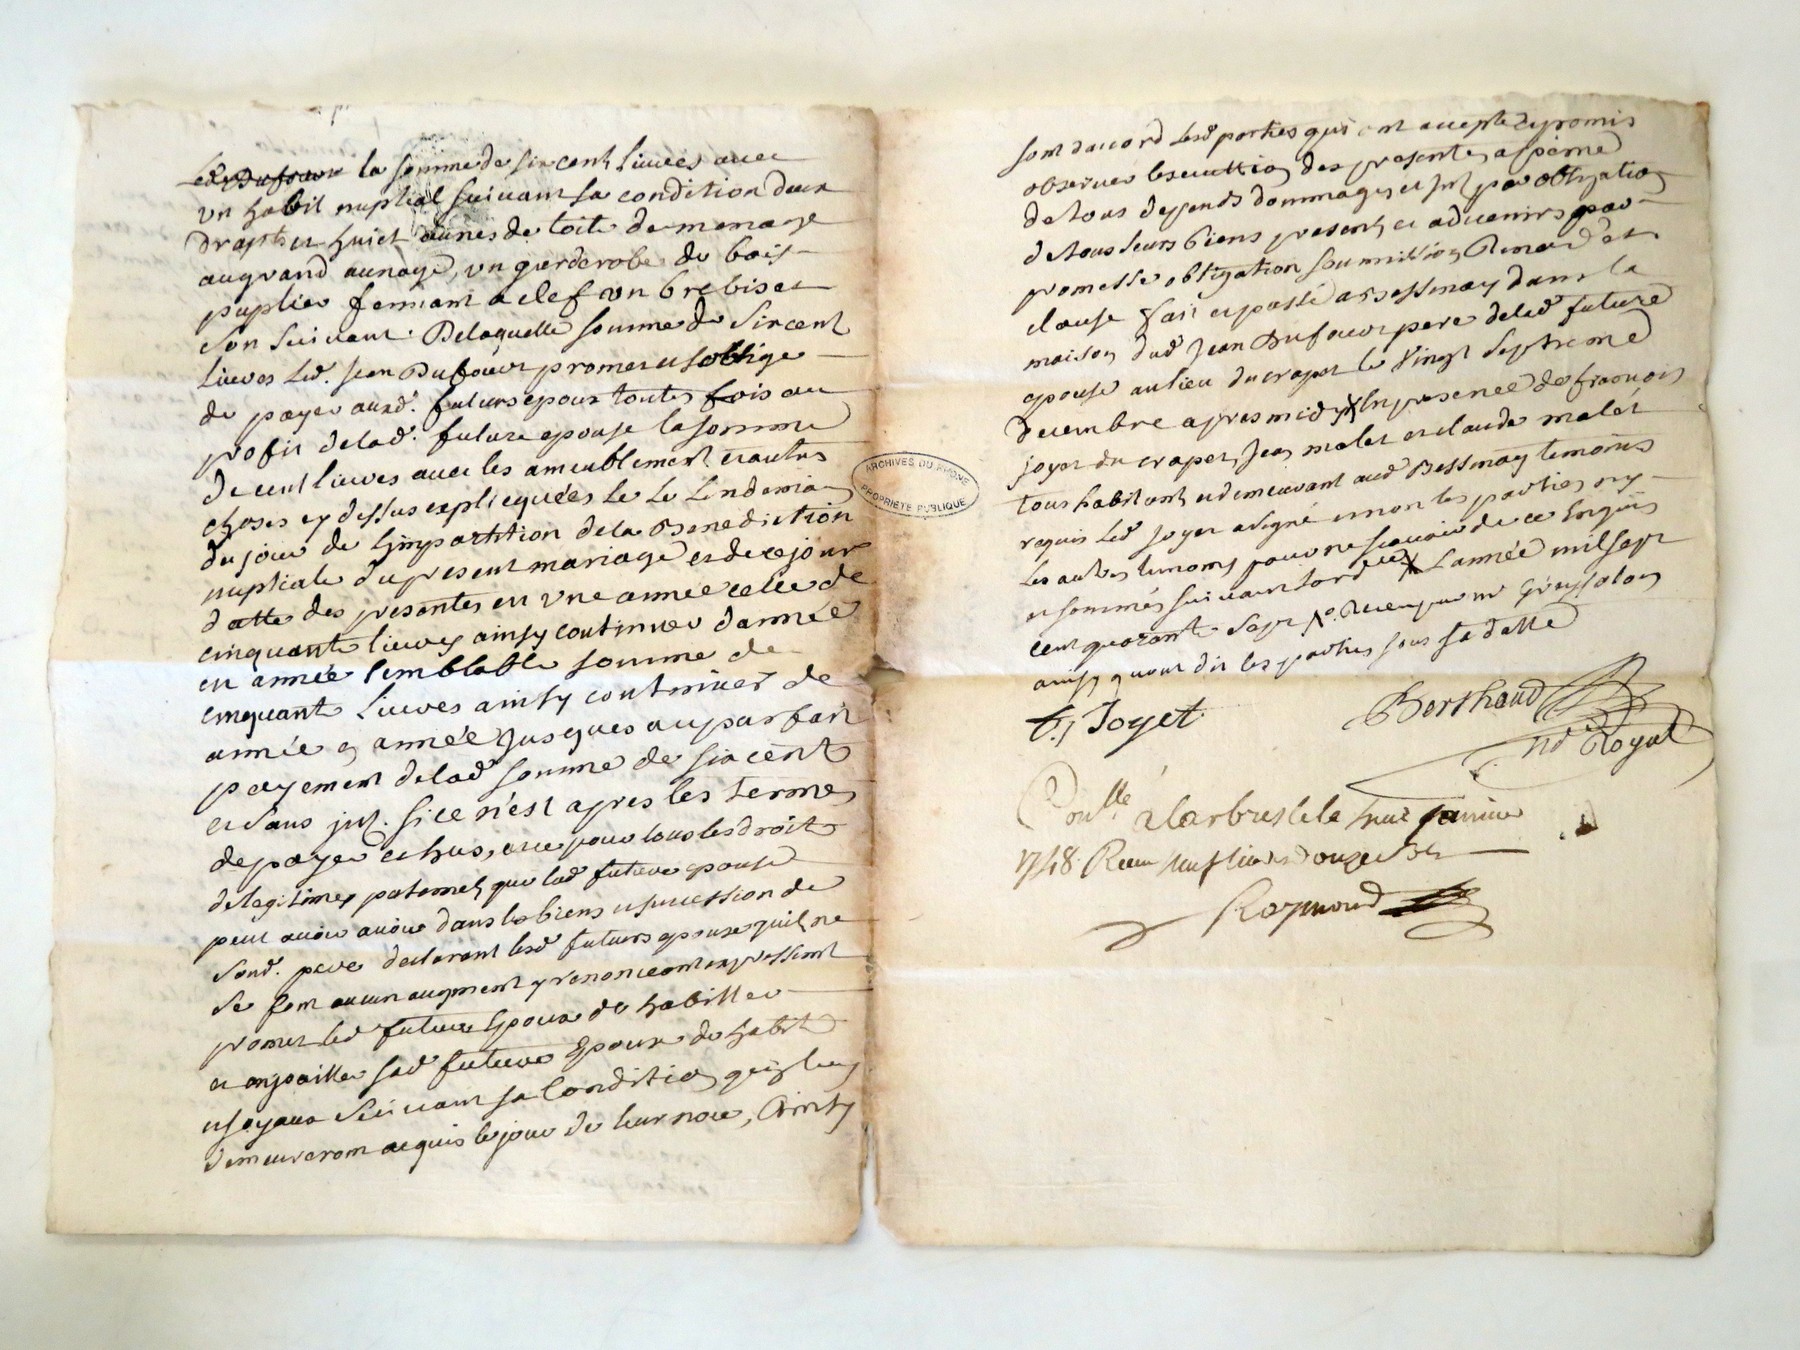 led Dufour la somme de six cent livres avec
un habit nuptial suivant sa condition deux
draps et huict aunes de toile de menage
au grand aunage, un garderobe de bois
puplier fermant a clef un brebis et
son suivant. De laquelle somme de six cent
livres led. Jean Dufour promet et soblige
de payer auxd. futurs epoux toutes fois au
profit de lad. future epouse la somme
de cent livres avec les ameublement et autres
choses cy dessus explicquées le lendemain
du jour de l'impartition de la Benediction
nuptiale du present mariage et de ce jour
datte des presentes en une année celle de
cinquante livres ainsy continuer d'année
en année semblable somme de
cinquante livres ainsy continuer de
année en année jusques au parfait
payement de lad somme de six cent
et sans jnt. si ce n'est apres les termes
de payer echus, et ce pour tous les droits
de legitimes paternels que lad future epouse
peut avoir dans les biens et succession de
sond. pere declarant lesd futurs epoux quils ne
se font aucun augment y renonceant expressemt
promet led futur Epoux de habiller
et enjoailler sad future Epouse de habits
et joyaux suivant sa Condition qui luy
demeureront acquis le jour de leur noce, Ainsy
sont d'accord lesd parties qui ont accepté et promis
observer lexecution des presentes a peine
de tous depends dommages et jnt par obligation
de tous leurs biens presents et advenirs par
promesse obligation soumission Renon et
clause fait et passé a Bessenay dans la
maison dud Jean Dufour pere de lad future
epouse au lieu du crapet le vingt septieme
decembre apres midy En presence de françois
joyet du crapet, Jean malet et claude malet
tous habitants et demeurant aud Bessenay temoins
requis led joyet a signé et non les parties ny
les autres temoins pour ne scavoir de ce Enquis
et sommés suivant lord L'année mil sept
cent quarante sept
ainsy quont dit les parties sous sa datte
f. Joyet
Berthaud
nre Royal
Conllé a Larbresle le huit janvier
1748. Receu neuf livres douze sols
Raymond
ARCHIVES DU RHONE
PROPRIETE PUBLIQUE